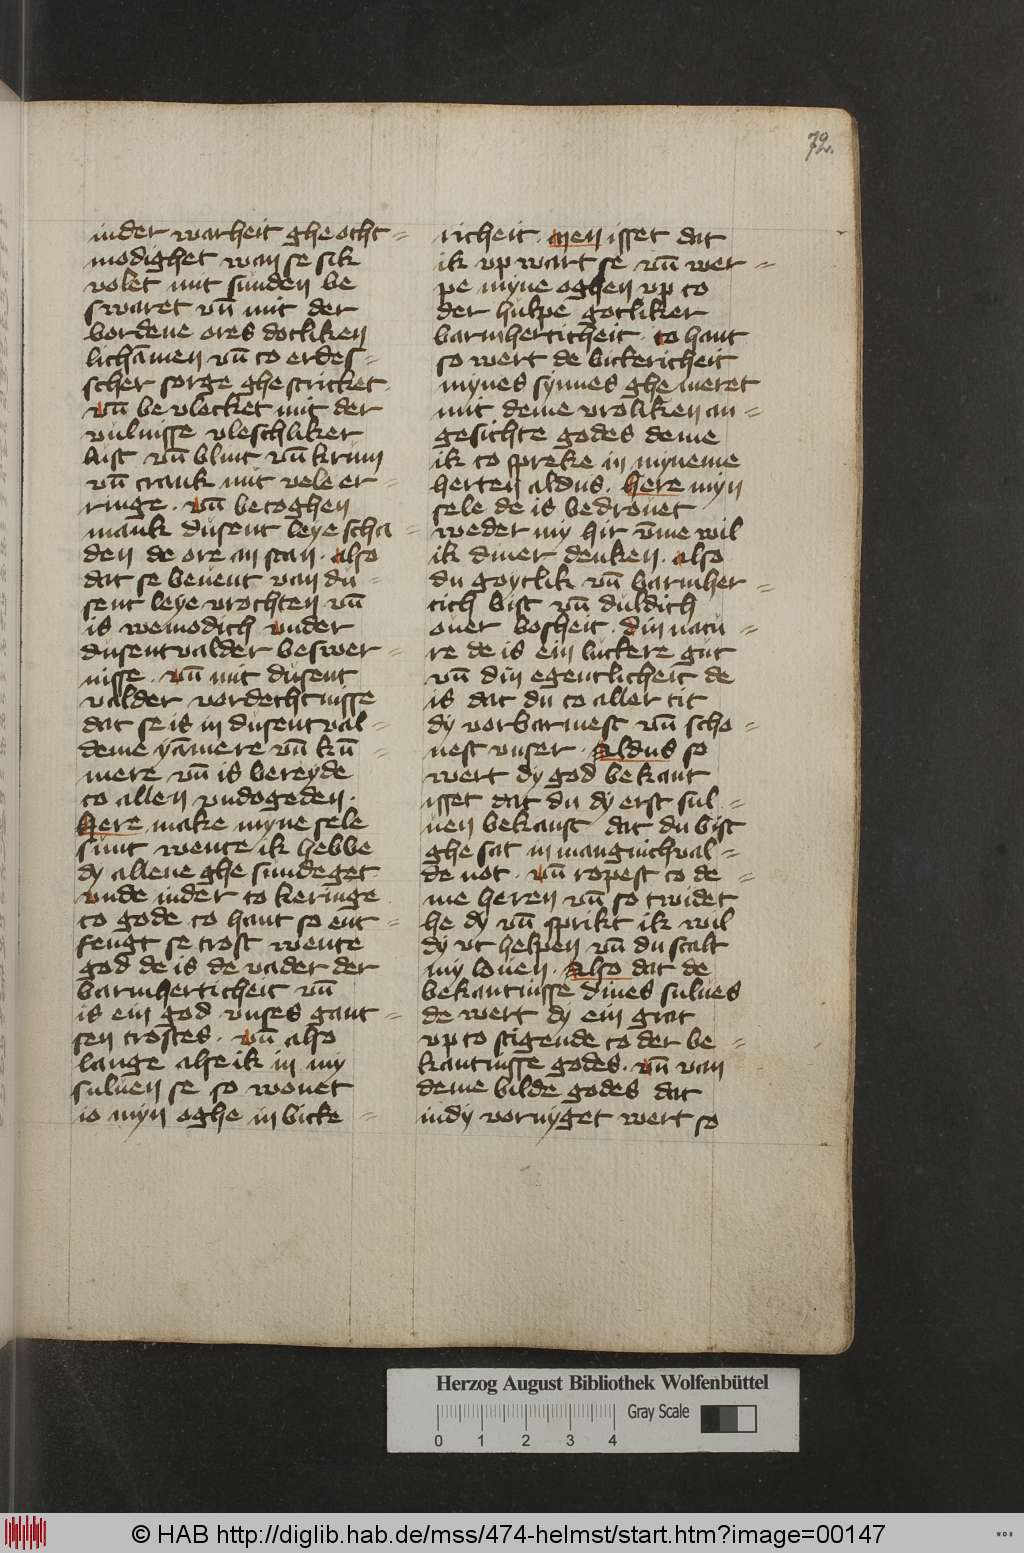 72.
in der warheit ghe ocht=
modighet wan se sik
volet mit sunden be
swaret vn̄ mit der
bordene ores dotliken
lichāmen vn̄ to erdes=
scher sorge ghe stricket
vn̄ be vlecket mit der
vulnisse vleschliker
lust vn̄ blint vn̄ krum
vn̄ crank mit vele er=
ringe · vn̄ be toghen
mank dusent leye scha=
den de ore an stan · also
dat se bevent van du=
sent leye vrochten vn̄
is wemodich vnder
dusentvalder beswer=
nisse · vn̄ mit dusent
valder vordechtnisse
dat se is in dusent val=
deme yāmere vn̄ ku̅=
mere vn̄ is bereyde
to allen vndogeden ·
Here make myne sele
sunt wente ik hebbe
dy allene ghe sundeget
vnde in der to keringe
to gode to hant so ent=
fengt se trost wente
god de is de vader der
barmherticheit vn̄
is ein god vnses gant=
sen trostes · vn̄ also
lange alse ik in my
suluen se so wonet
io myn oghe in bicke=
richeit · Men isset dat
ik vp wart se vn̄ wer=
pe myne oghen vp to
der hulpe gotliker
barmherticheit · to hant
so wert de bickericheit
mynes synnes ghe meret
mit deme vroliken an=
gesichte godes deme
ik to spreke in myneme
herten aldus · Here myn
sele de is bedrouet
weder my hir vm̄e wil
ik diner denken · also
du goytlik vn̄ barmher=
tich bist vn̄ duldich
ouer bosheit · din natu=
re de is ein luckere gut
vn̄ din egentlicheit de
is dat du to aller tit
dy vorbarmest vn̄ scho=
nest vnser · Aldus so
wert dy god bekant
isset dat du dy erst sul=
uen bekanst dat du bist
ghe sat in mangnichual=
de not · vn̄ ropest to de=
me heren vn̄ so twidet
he dy vn̄ sprikt ik wil
dy vt helpen vn̄ du scalt
my louen · Also dat de
bekantnisse dines sulues
de wert dy ein grat
vp to stigende to der be=
kantnisse godes · vn̄ van
deme bilde godes dat
in dy vornyget wert so
Herzog August Bibliothek Wolfenbüttel
Gray Scale
0 1 2 3 4
© HAB http://diglib.hab.de/mss/474-helmst/start.htm?image=00147